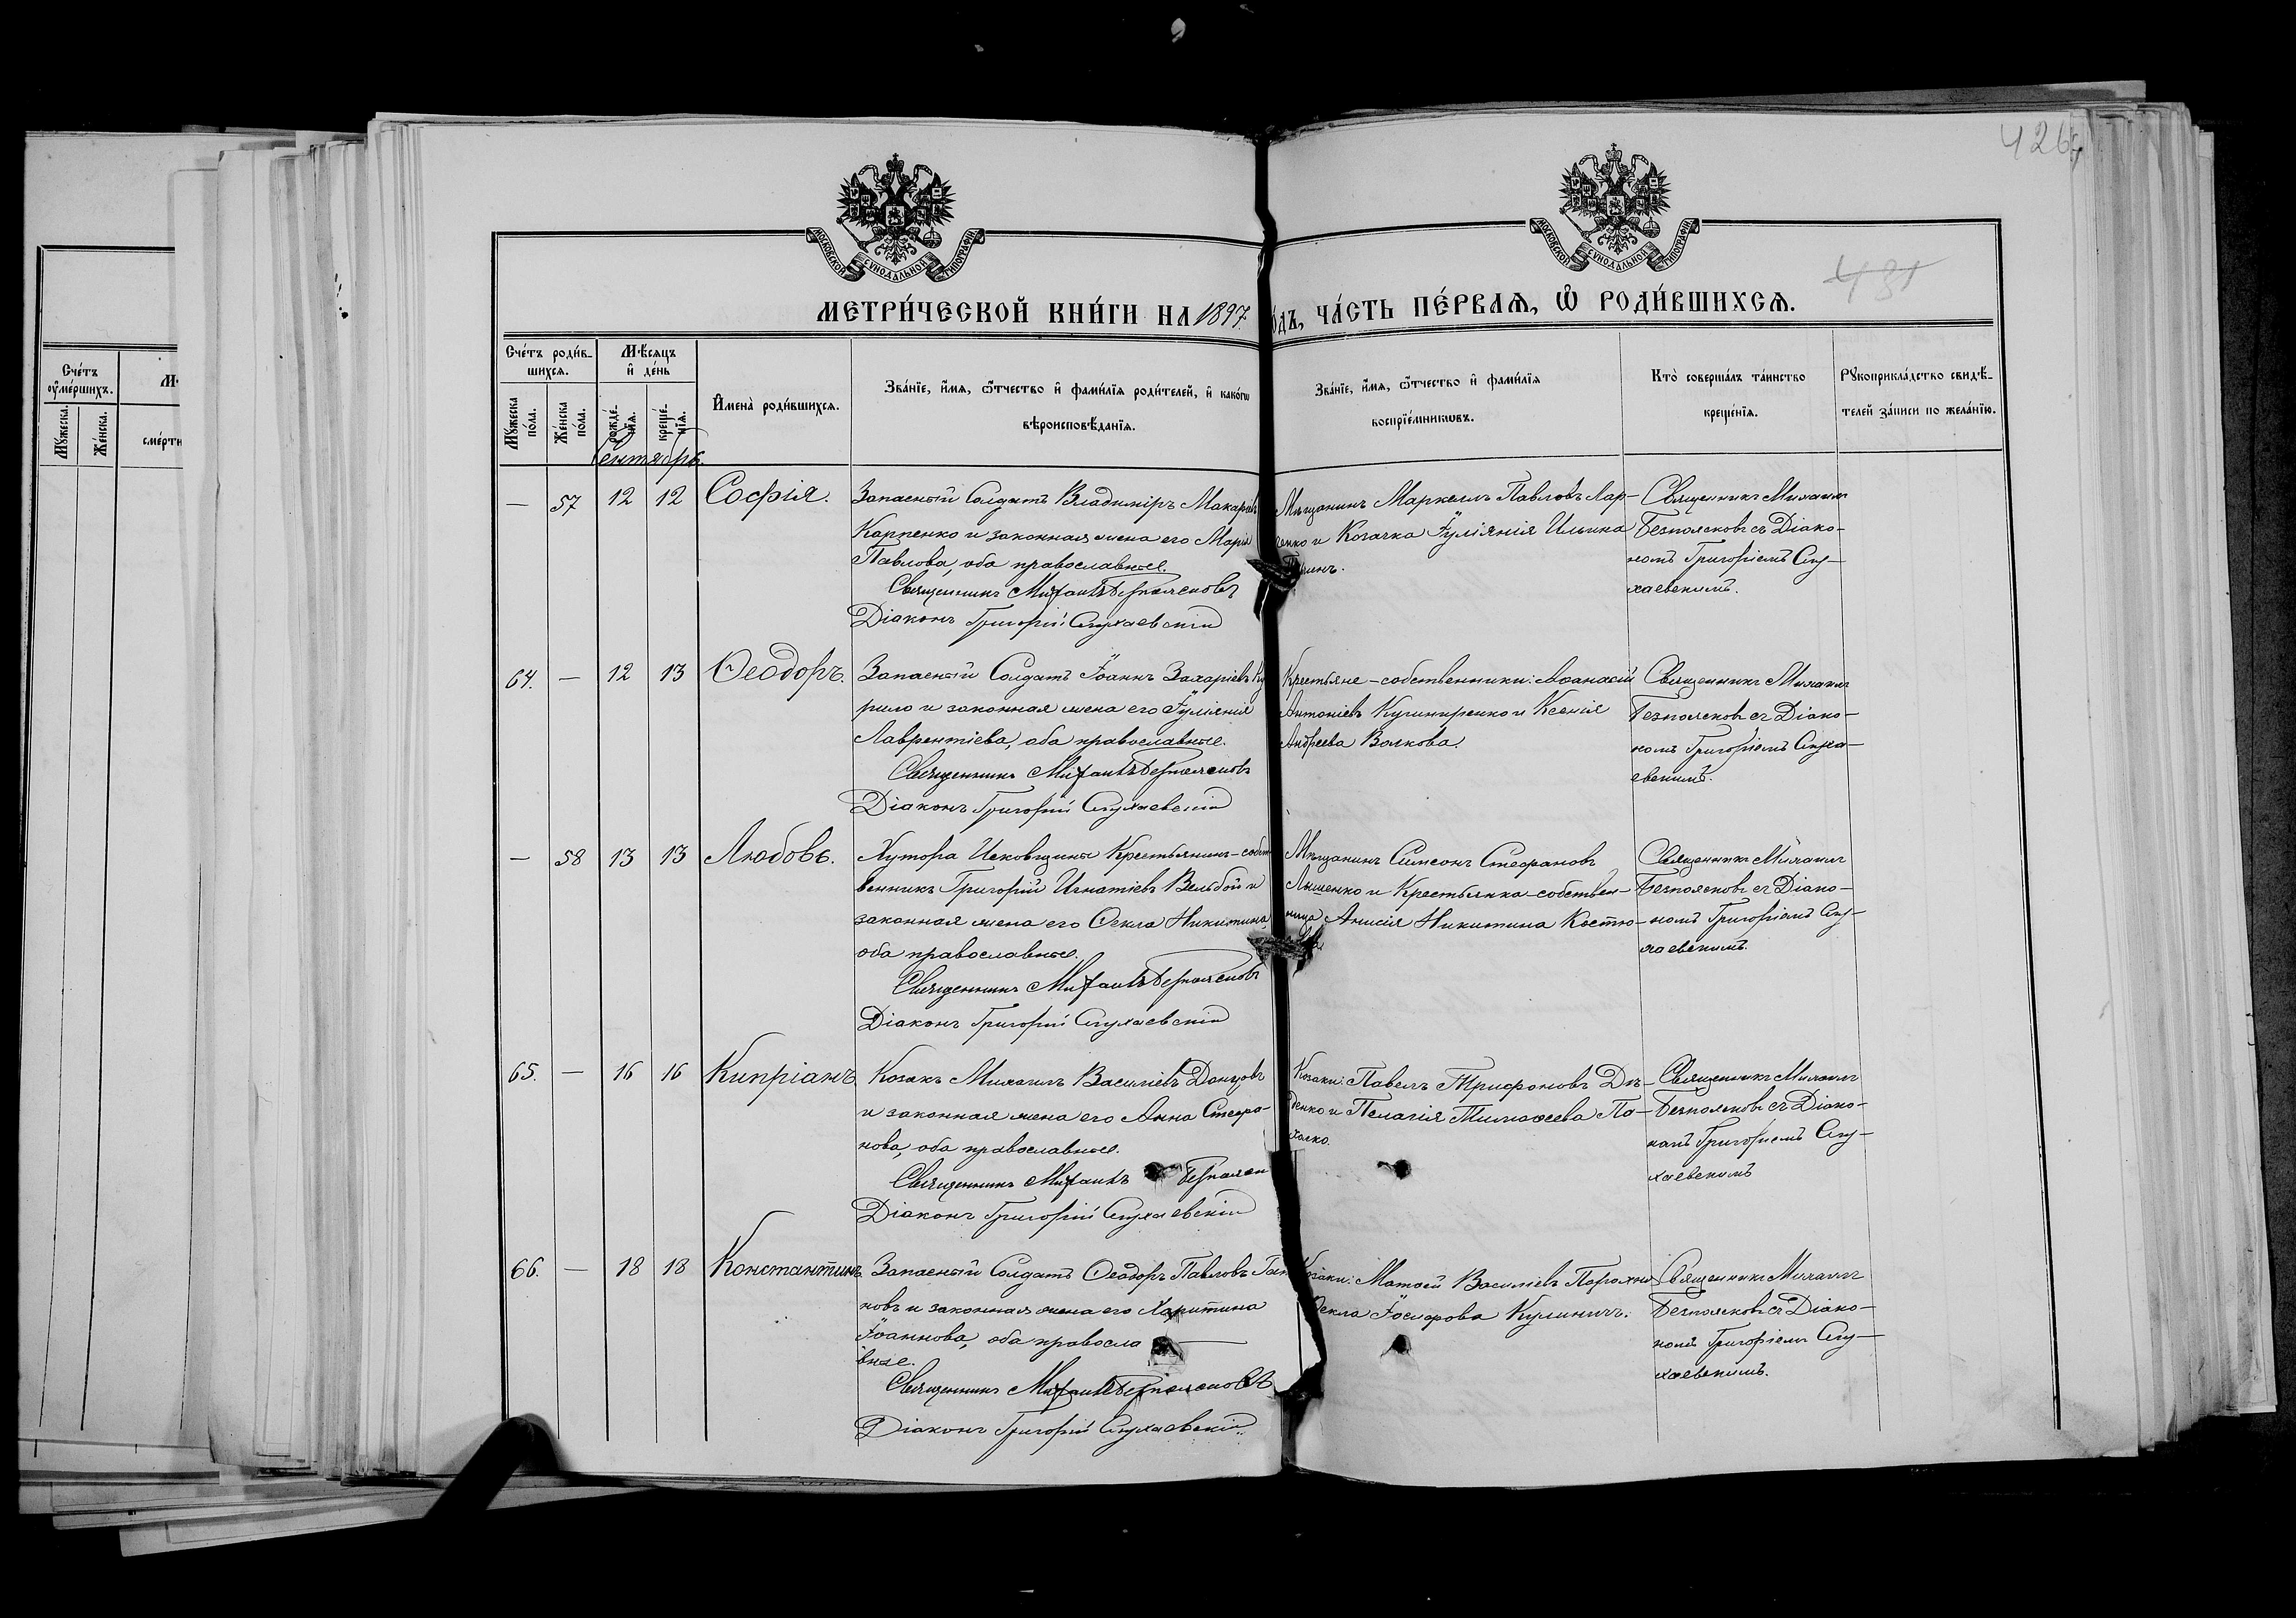 426
МОСКОВСКОЙ СѴНОДАЛЬНОЙ ТИПОГРАФІИ
МОСКОВСКОЙ СѴНОДАЛЬНОЙ ТИПОГРАФІИ
431
МЕТРИ́ЧЕСКОЙ КНИ́ГИ НА 1897 ЧА́СТЬ ПЕ́РВАѦ, Ѡ҆ РОДИ́ВШИХСѦ.
Сче́тъ роди́в-
шихсѧ.
Мꙋ́жеска по́ла.
Же́нска по́ла.
Мѣ́сѧцъ и҆ де́нь
рожде́-нїѧ.
креще́-нїѧ.
И҆мена̀ роди́вшихсѧ.
Зва́нїе, и҆́мѧ, ѻ҆́тчество и҆ фами́лїѧ роди́телей, и҆ како́гѡ
вѣроисповѣ́данїѧ.
Зва́нїе, и҆́мѧ, ѻ҆́тчество и҆ фами́лїѧ
воспрїе́мникѡвъ.
Кто̀ соверша́лъ та́инство
креще́нїѧ.
Рꙋкоприкла́дство свидѣ́-
телей за́писи по жела́нїю.
Сче́тъ
оу҆ме́ршихъ.
Мꙋ́жеска.
Же́нска.
сме́рти
Сентябрь.
— 57 12 12 Софія.
Запасный Солдатъ Владиміръ Макаріевъ
Карпенко и законная жена его Марія
Павлова, оба православные.
Священникъ Михаилъ Безпоясковъ
Діаконъ Григорій Слухаевскій
Мѣщанинъ Маркеллъ Павловъ Лар-
енко и Козачка Іуліянія Ильина
Священникъ Михаилъ
Безпоясковъ съ Діако-
номъ Григоріемъ Слу-
хаевскимъ.
64. — 12 13 Ѳеодоръ.
Запасный Солдатъ Іоаннъ Захаріевъ Ку
рило и законная жена его Іуліянія
Лаврентіева, оба православные.
Священникъ Михаилъ Безпоясковъ
Діаконъ Григорій Слухаевскій
Крестьяне-собственники: Аѳанасій
Антоніевъ Кушниренко и Ксенія
Андреева Волкова.
Священникъ Михаилъ
Безпоясковъ съ Діако-
номъ Григоріемъ Слуха-
евскимъ.
— 58 13 13 Любовь.
Хутора Исковщины Крестьянинъ-собст
венникъ Григорій Игнатіевъ Вельбой и
законная жена его Ѳекла Никитина,
оба православные.
Священникъ Михаилъ Безпоясковъ
Діаконъ Григорій Слухаевскій
Мѣщанинъ Симеонъ Стефановъ
Ляшенко и Крестьянка-собствен-
ница Анисія Никитина Костю-
Священникъ Михаилъ
Безпоясковъ съ Діако-
номъ Григоріемъ Слу-
хаевскимъ.
65. — 16 16 Кипріанъ.
Козакъ Михаилъ Василіевъ Донцовъ
и законная жена его Анна Стефа-
нова, оба православные.
Священникъ Михаилъ Безпояск
Діаконъ Григорій Слухаевскій
Козаки: Павелъ Трифоновъ Дя-
денко и Пелагія Тимоѳеева Па-
Священникъ Михаилъ
Безпоясковъ съ Діако-
номъ Григоріемъ Слу-
хаевскимъ
66. — 18 18 Константинъ.
Запасный Солдатъ Ѳеодоръ Павловъ Ган
новъ и законная жена его Харитина
Іоаннова, оба правосла
вные.
Священникъ Михаилъ Безпоясковъ
Діаконъ Григорій Слухаевскій
Козаки: Матѳей Василіевъ Парахня
Ѳекла Іосифова Кулиничъ.
Священникъ Михаилъ
Безпоясковъ съ Діако-
номъ Григоріемъ Слу-
хаевскимъ.